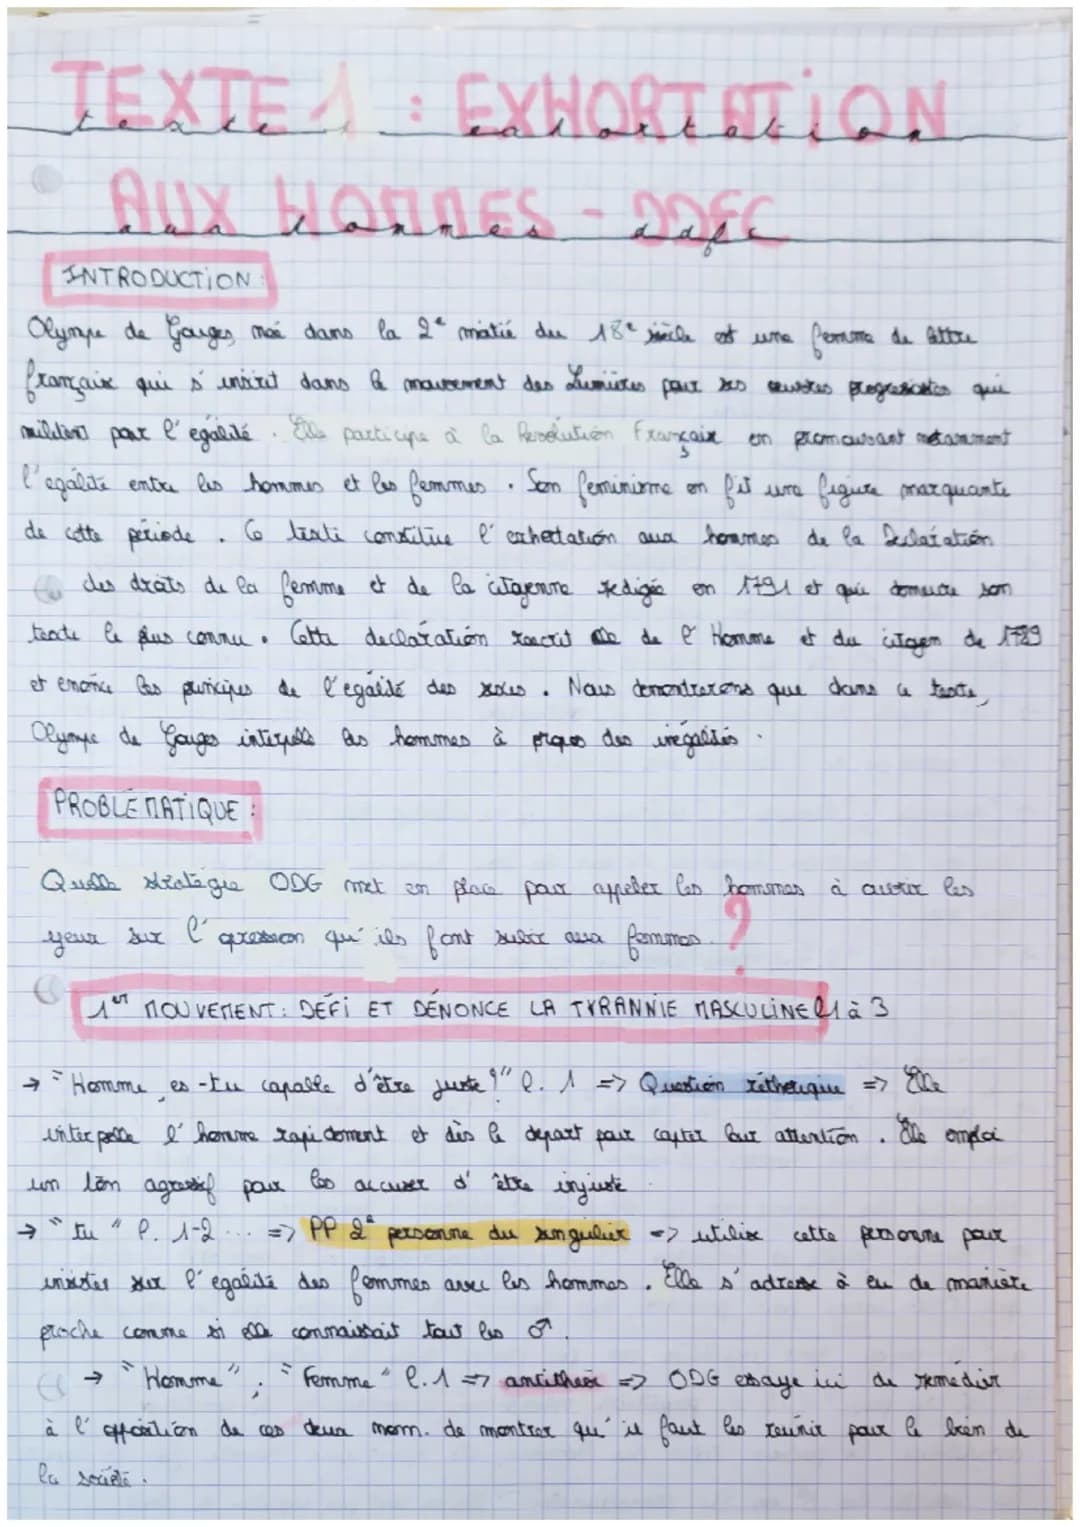 TEXTE 1 : EXHORTATION
texte 1 : exhortation
AUX HOMMES - DDFC
aux hommes ddfc
INTRODUCTION :
Olympe de Gouges, née dans la 2e moitié du 18e siècle est une femme de lettre
française qui s'inscrit dans le mouvement des Lumières pour ses oeuvres progressistes qui
militent pour l'égalité. Elle participe à la Révolution Française en promouvant notamment
l'égalité entre les hommes et les femmes. Son féminisme en fit une figure marquante
de cette période. Ce texte constitue l'exhortation aux hommes de la Déclaration
des droits de la femme et de la citoyenne redigée en 1791 et qui demeure son
texte le plus connu. Cette declaration réécrit de l'Homme et du citoyen de 1789
et enonce les principes de l'égalité des sexes. Nous demontrerons que dans ce texte,
Olympe de Gouges interpelle les hommes à propos des inégalités.
PROBLÉMATIQUE :
Quelle stratégie ODG met en place pour appeler les hommes à ouvrir les
yeux sur l'opression qu'ils font subir aux femmes ?
1er MOUVEMENT : DÉFI ET DÉNONCE LA TYRANNIE MASCULINE l1 à 3
→ "Homme, es-tu capable d'être juste ?" l. 1 => Question réthorique => Elle
interpelle l'homme rapidement et dès le depart pour capter leur attention. Elle emploi
un ton agressif pour les accuser d'être injuste.
→ "tu" l. 1-2 ... => PP 2e personne du singulier => utilise cette personne pour
insister sur l'égalité des femmes avec les hommes. Elle s'adresse à eu de manière
proche comme si elle connaissait tout les ♂.
→ "Homme" ; "Femme" l.1 => antithèse => ODG essaye ici de remédier
à l'opposition de ces deux nom. de montrer qu'il faut les réunir pour le bien de
la société.